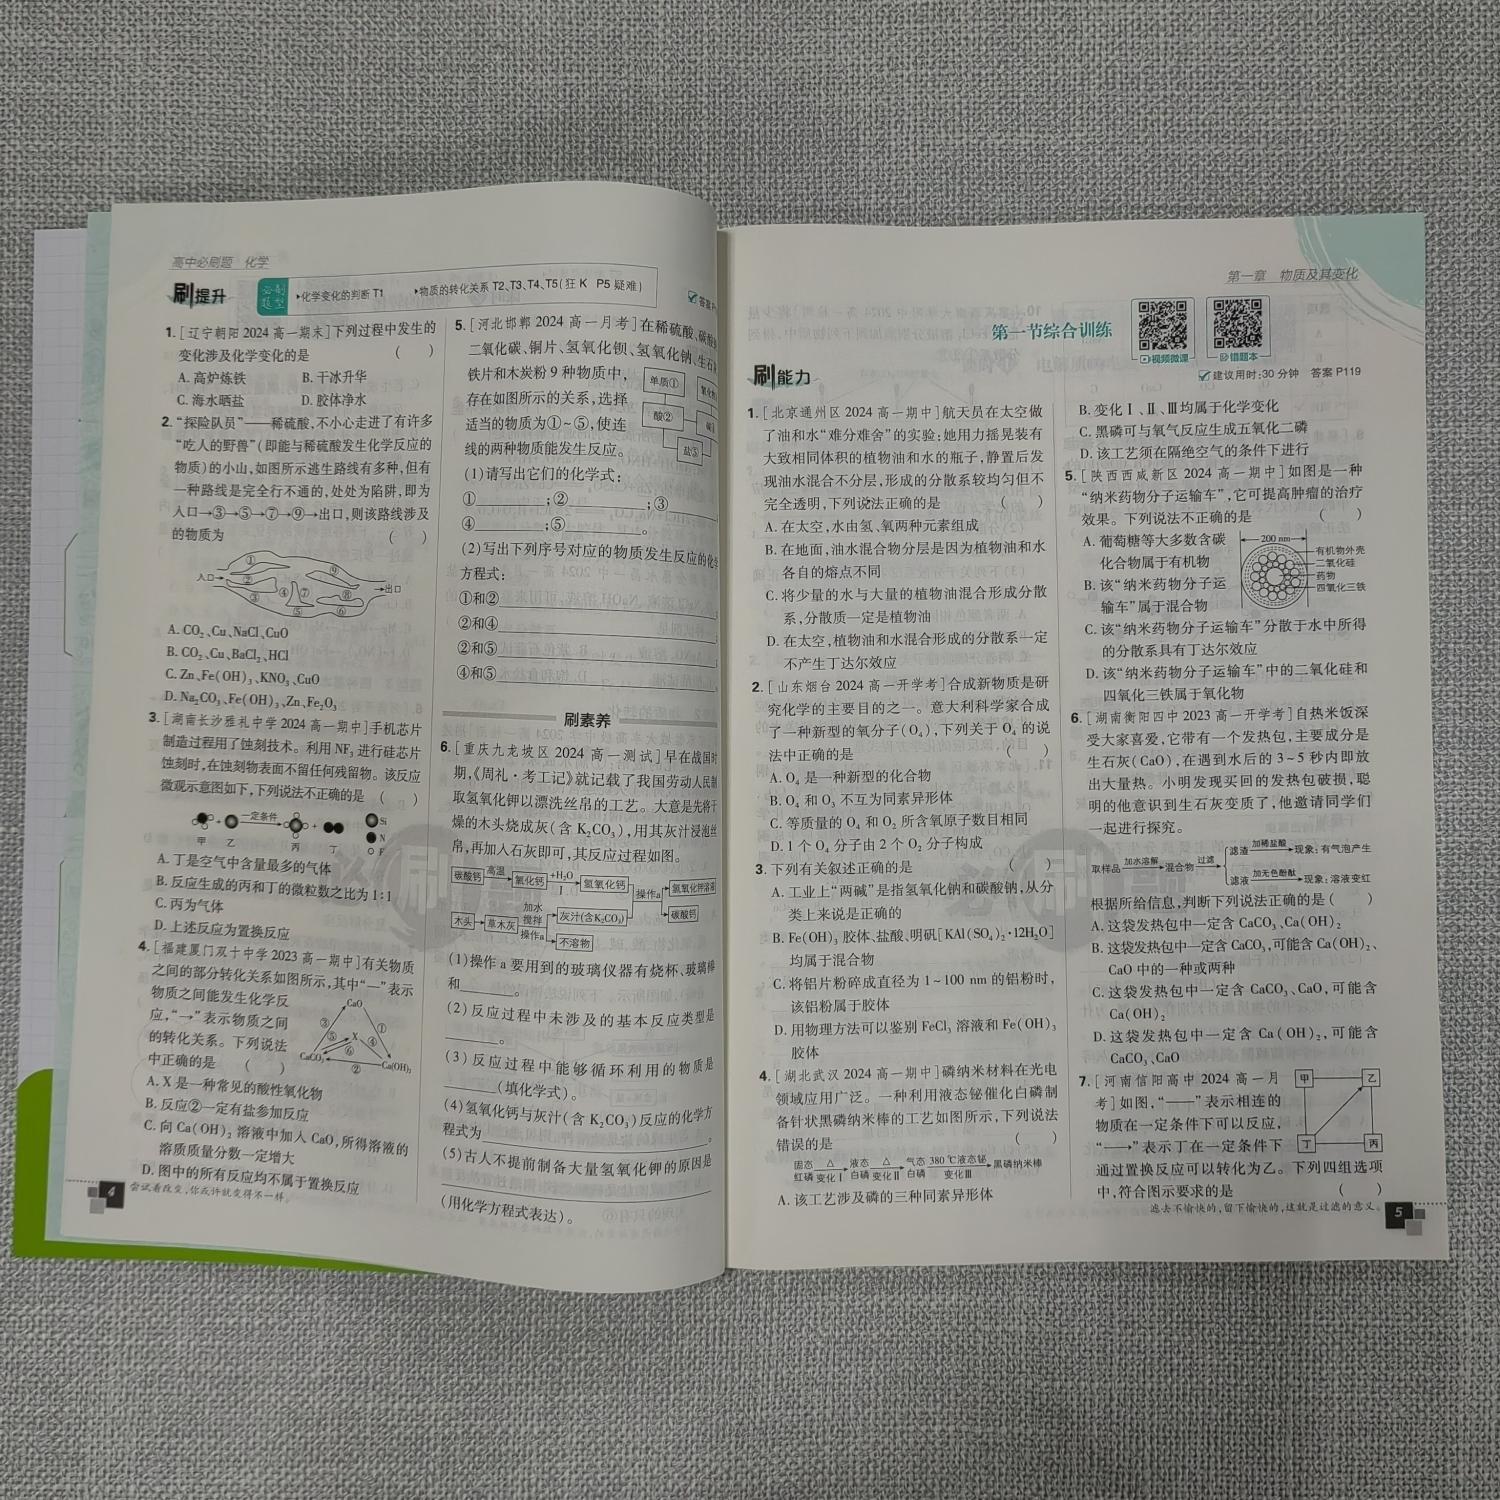 高中必刷题 化学
刷提升
必刷题型
▸化学变化的判断 T1 ▸物质的转化关系 T2、T3、T4、T5(狂 K P5 疑难)
答案 P
1. [辽宁朝阳 2024 高一期末]下列过程中发生的
变化涉及化学变化的是 ( )
A. 高炉炼铁 B. 干冰升华
C. 海水晒盐 D. 胶体净水
2. “探险队员”——稀硫酸,不小心走进了有许多
“吃人的野兽”(即能与稀硫酸发生化学反应的
物质)的小山,如图所示逃生路线有多种,但有
一种路线是完全行不通的,处处为陷阱,即为
入口→③→⑤→⑦→⑨→出口,则该路线涉及
的物质为 ( )
入口 ① ② ③ ④ ⑤ ⑥ ⑦ ⑧ ⑨ 出口
A. CO₂、Cu、NaCl、CuO
B. CO₂、Cu、BaCl₂、HCl
C. Zn、Fe(OH)₃、KNO₃、CuO
D. Na₂CO₃、Fe(OH)₃、Zn、Fe₂O₃
3. [湖南长沙雅礼中学 2024 高一期中]手机芯片
制造过程用了蚀刻技术。利用 NF₃ 进行硅芯片
蚀刻时,在蚀刻物表面不留任何残留物。该反应
微观示意图如下,下列说法不正确的是 ( )
一定条件 Si N F
甲 乙 丙 丁
A. 丁是空气中含量最多的气体
B. 反应生成的丙和丁的微粒数之比为 1:1
C. 丙为气体
D. 上述反应为置换反应
4. [福建厦门双十中学 2023 高一期中]有关物质
之间的部分转化关系如图所示,其中“—”表示
物质之间能发生化学反
应,“→”表示物质之间
的转化关系。下列说法
中正确的是 ( )
CaO ③ ① ⑤ X ④ ⑥ CaCO₃ ② Ca(OH)₂
A. X 是一种常见的酸性氧化物
B. 反应②一定有盐参加反应
C. 向 Ca(OH)₂ 溶液中加入 CaO,所得溶液的
溶质质量分数一定增大
D. 图中的所有反应均不属于置换反应
4 尝试着改变,你或许就变得不一样。
5. [河北邯郸 2024 高一月考]在稀硫酸、碳酸
二氧化碳、铜片、氢氧化钡、氢氧化钠、生石
铁片和木炭粉 9 种物质中,
存在如图所示的关系,选择
适当的物质为①~⑤,使连
线的两种物质能发生反应。
单质①
酸②
盐⑤
(1)请写出它们的化学式:
①________;②________;③
④________;⑤________。
(2)写出下列序号对应的物质发生反应的化学
方程式:
①和②
②和④
②和⑤
④和⑤
刷素养
6. [重庆九龙坡区 2024 高一测试]早在战国时
期,《周礼·考工记》就记载了我国劳动人民制
取氢氧化钾以漂洗丝帛的工艺。大意是先将干
燥的木头烧成灰(含 K₂CO₃),用其灰汁浸泡丝
帛,再加入石灰即可,其反应过程如图。
碳酸钙 高温 氧化钙 +H₂O 氢氧化钙 操作a 氢氧化钾溶液
碳酸钙
木头 草木灰 加水 搅拌 操作a 灰汁(含K₂CO₃)
不溶物
(1)操作 a 要用到的玻璃仪器有烧杯、玻璃棒
和________。
(2)反应过程中未涉及的基本反应类型是
________。
(3)反应过程中能够循环利用的物质是
________(填化学式)。
(4)氢氧化钙与灰汁(含 K₂CO₃)反应的化学方
程式为________。
(5)古人不提前制备大量氢氧化钾的原因是
________
(用化学方程式表达)。
第一章 物质及其变化
第一节综合训练
视频微课
错题本
刷能力
建议用时:30 分钟 答案 P119
1. [北京通州区 2024 高一期中]航天员在太空做
了油和水“难分难舍”的实验:她用力摇晃装有
大致相同体积的植物油和水的瓶子,静置后发
现油水混合不分层,形成的分散系较均匀但不
完全透明,下列说法正确的是 ( )
A. 在太空,水由氢、氧两种元素组成
B. 在地面,油水混合物分层是因为植物油和水
各自的熔点不同
C. 将少量的水与大量的植物油混合形成分散
系,分散质一定是植物油
D. 在太空,植物油和水混合形成的分散系一定
不产生丁达尔效应
2. [山东烟台 2024 高一开学考]合成新物质是研
究化学的主要目的之一。意大利科学家合成
了一种新型的氧分子(O₄),下列关于 O₄ 的说
法中正确的是 ( )
A. O₄ 是一种新型的化合物
B. O₄ 和 O₃ 不互为同素异形体
C. 等质量的 O₄ 和 O₂ 所含氧原子数目相同
D. 1 个 O₄ 分子由 2 个 O₂ 分子构成
3. 下列有关叙述正确的是 ( )
A. 工业上“两碱”是指氢氧化钠和碳酸钠,从分
类上来说是正确的
B. Fe(OH)₃ 胶体、盐酸、明矾[KAl(SO₄)₂·12H₂O]
均属于混合物
C. 将铝片粉碎成直径为 1~100 nm 的铝粉时,
该铝粉属于胶体
D. 用物理方法可以鉴别 FeCl₃ 溶液和 Fe(OH)₃
胶体
4. [湖北武汉 2024 高一期中]磷纳米材料在光电
领域应用广泛。一种利用液态铋催化白磷制
备针状黑磷纳米棒的工艺如图所示,下列说法
错误的是 ( )
固态红磷 △ 变化Ⅰ 液态白磷 △ 变化Ⅱ 气态白磷 380 ℃液态铋 变化Ⅲ 黑磷纳米棒
A. 该工艺涉及磷的三种同素异形体
B. 变化Ⅰ、Ⅱ、Ⅲ均属于化学变化
C. 黑磷可与氧气反应生成五氧化二磷
D. 该工艺须在隔绝空气的条件下进行
5. [陕西西咸新区 2024 高一期中]如图是一种
“纳米药物分子运输车”,它可提高肿瘤的治疗
效果。下列说法不正确的是 ( )
A. 葡萄糖等大多数含碳
化合物属于有机物
B. 该“纳米药物分子运
输车”属于混合物
200 nm
有机物外壳
二氧化硅
药物
四氧化三铁
C. 该“纳米药物分子运输车”分散于水中所得
的分散系具有丁达尔效应
D. 该“纳米药物分子运输车”中的二氧化硅和
四氧化三铁属于氧化物
6. [湖南衡阳四中 2023 高一开学考]自热米饭深
受大家喜爱,它带有一个发热包,主要成分是
生石灰(CaO),在遇到水后的 3~5 秒内即放
出大量热。小明发现买回的发热包破损,聪
明的他意识到生石灰变质了,他邀请同学们
一起进行探究。
取样品 加水溶解 混合物 过滤 滤渣 加稀盐酸 现象:有气泡产生
滤液 加无色酚酞 现象:溶液变红
根据所给信息,判断下列说法正确的是 ( )
A. 这袋发热包中一定含 CaCO₃、Ca(OH)₂
B. 这袋发热包中一定含 CaCO₃,可能含 Ca(OH)₂、
CaO 中的一种或两种
C. 这袋发热包中一定含 CaCO₃、CaO,可能含
Ca(OH)₂
D. 这袋发热包中一定含 Ca(OH)₂,可能含
CaCO₃、CaO
7. [河南信阳高中 2024 高一月
考]如图,“——”表示相连的
物质在一定条件下可以反应,
“—→”表示丁在一定条件下
通过置换反应可以转化为乙。下列四组选项
中,符合图示要求的是 ( )
甲 乙
丁 丙
滤去不愉快的,留下愉快的,这就是过滤的意义。 5